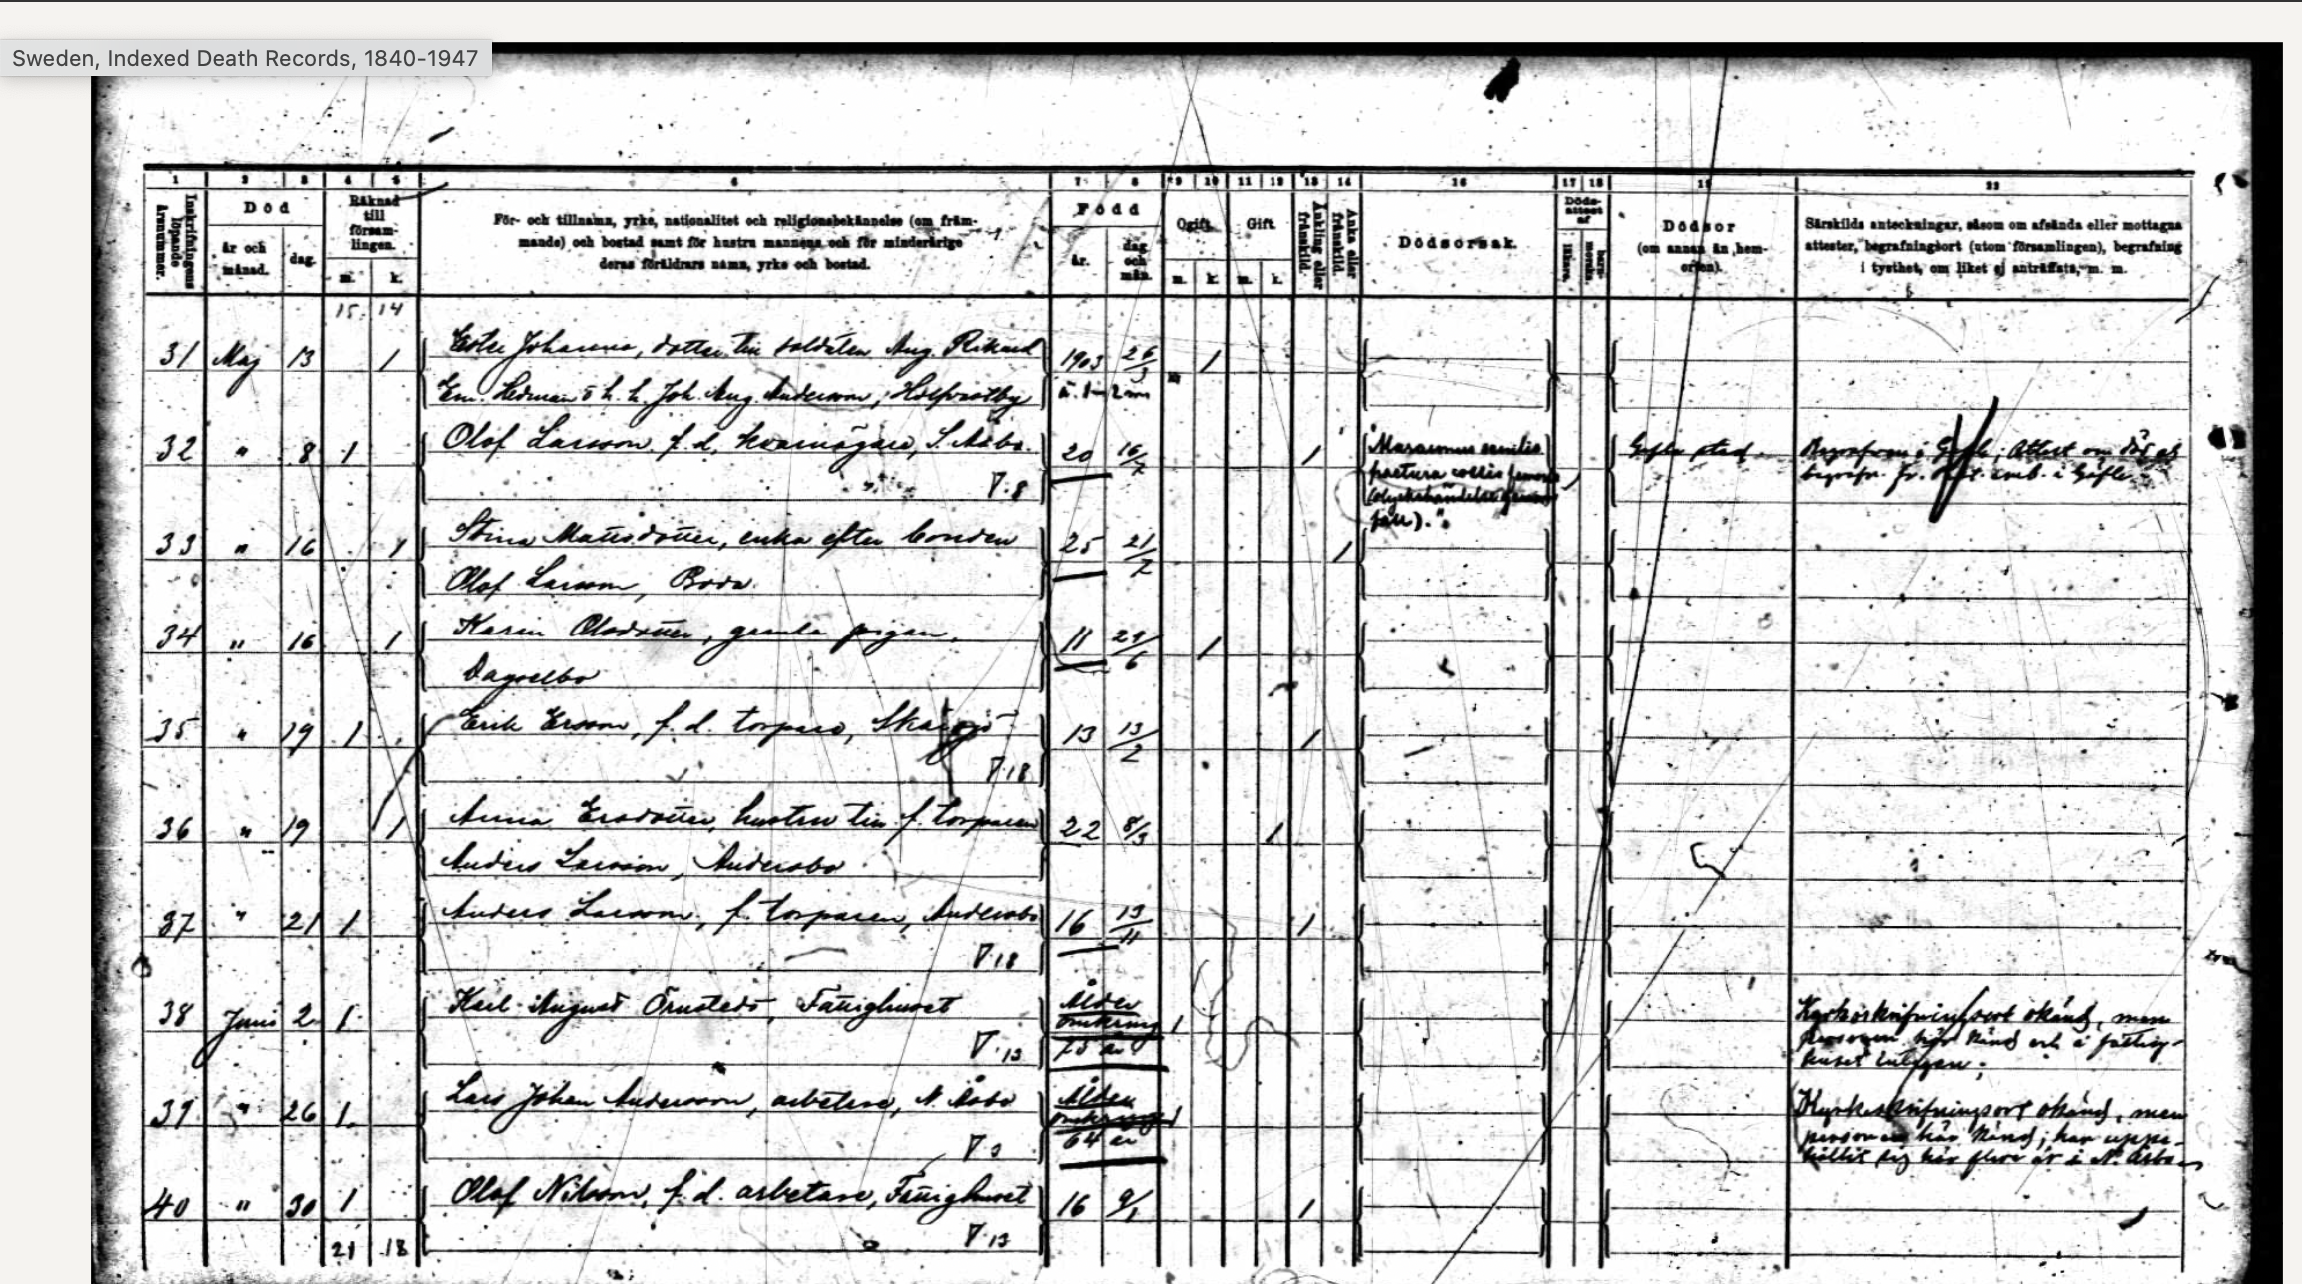 Sweden, Indexed Death Records, 1840-1947
1 2 3 4 5 6 7 8 9 10 11 12 13 14 16 17 18 19 22
Inskrifningens löpande årsnummer.
Död
år och månad.
dag.
Räknad till församlingen.
m. k.
För- och tillnamn, yrke, nationalitet och religionsbekännelse (om främ-
mande) och bostad samt för hustru mannens och för minderårige
deras föräldrars namn, yrke och bostad.
Född
år.
dag och mån.
Ogift.
m. k.
Gift
m. k.
Änkling eller frånskild.
Änka eller frånskild.
Dödsorsak.
Döds-attest af
läkare.
barn-morska.
Dödsor
(om annan än hem-
orten).
Särskilda anteckningar, såsom om afsända eller mottagna
attester, begrafningsort (utom församlingen), begrafning
i tysthet, om liket ej anträffats, m. m.
15. 14
31 Maj 13 1 Johanna, dotter till soldaten Aug. Rikard 1903 26/3 1
Em. Hedman o. h. h. Joh. Aug. Andersson,
32 " 8 1 Olof Larsson f. d. kvarnägare, S. Åsbo 20 16/7 1 "Marasmus senilis Gefle stad. Begrafven i Gefle; Attest om död o
V. 8 fractura collis femoris
(olyckshändelse genom
fall)."
33 " 16 1 Stina Mattsdotter, enka efter bonden 25 21/2 1
Olof Larsson, Boda.
34 " 16 1 Karin Olsdotter, gamla pigan, 11 29/6 1
Dagvelbo
35 " 19 1 Erik Ersson, f. d. torpare, 13 13/2 1
V. 18
36 " 19 1 Anna Ersdotter, hustru till f. torparen 22 8/3 1
Anders Larsson, Andersbo
37 " 21 1 Anders Larsson, f. torparen, Andersbo 16 13/11 1
V. 18
38 Juni 2 1 Karl August Örnstedt, Fattighuset Ålder omkring 75 år 1 Kyrkoskrifningsort okänd, men
V. 13 personen här känd och i fattig-
huset
39 " 26 1 Lars Johan Andersson, arbetare, N. Åsbo Ålder omkring 64 år 1 Kyrkoskrifningsort okänd, men
V. 3 personen här känd; har uppe-
hållit sig här flere år i N. Åsbo
40 " 30 1 Olof Nilsson, f. d. arbetare, Fattighuset 16 9/1 1
V. 13
21 18